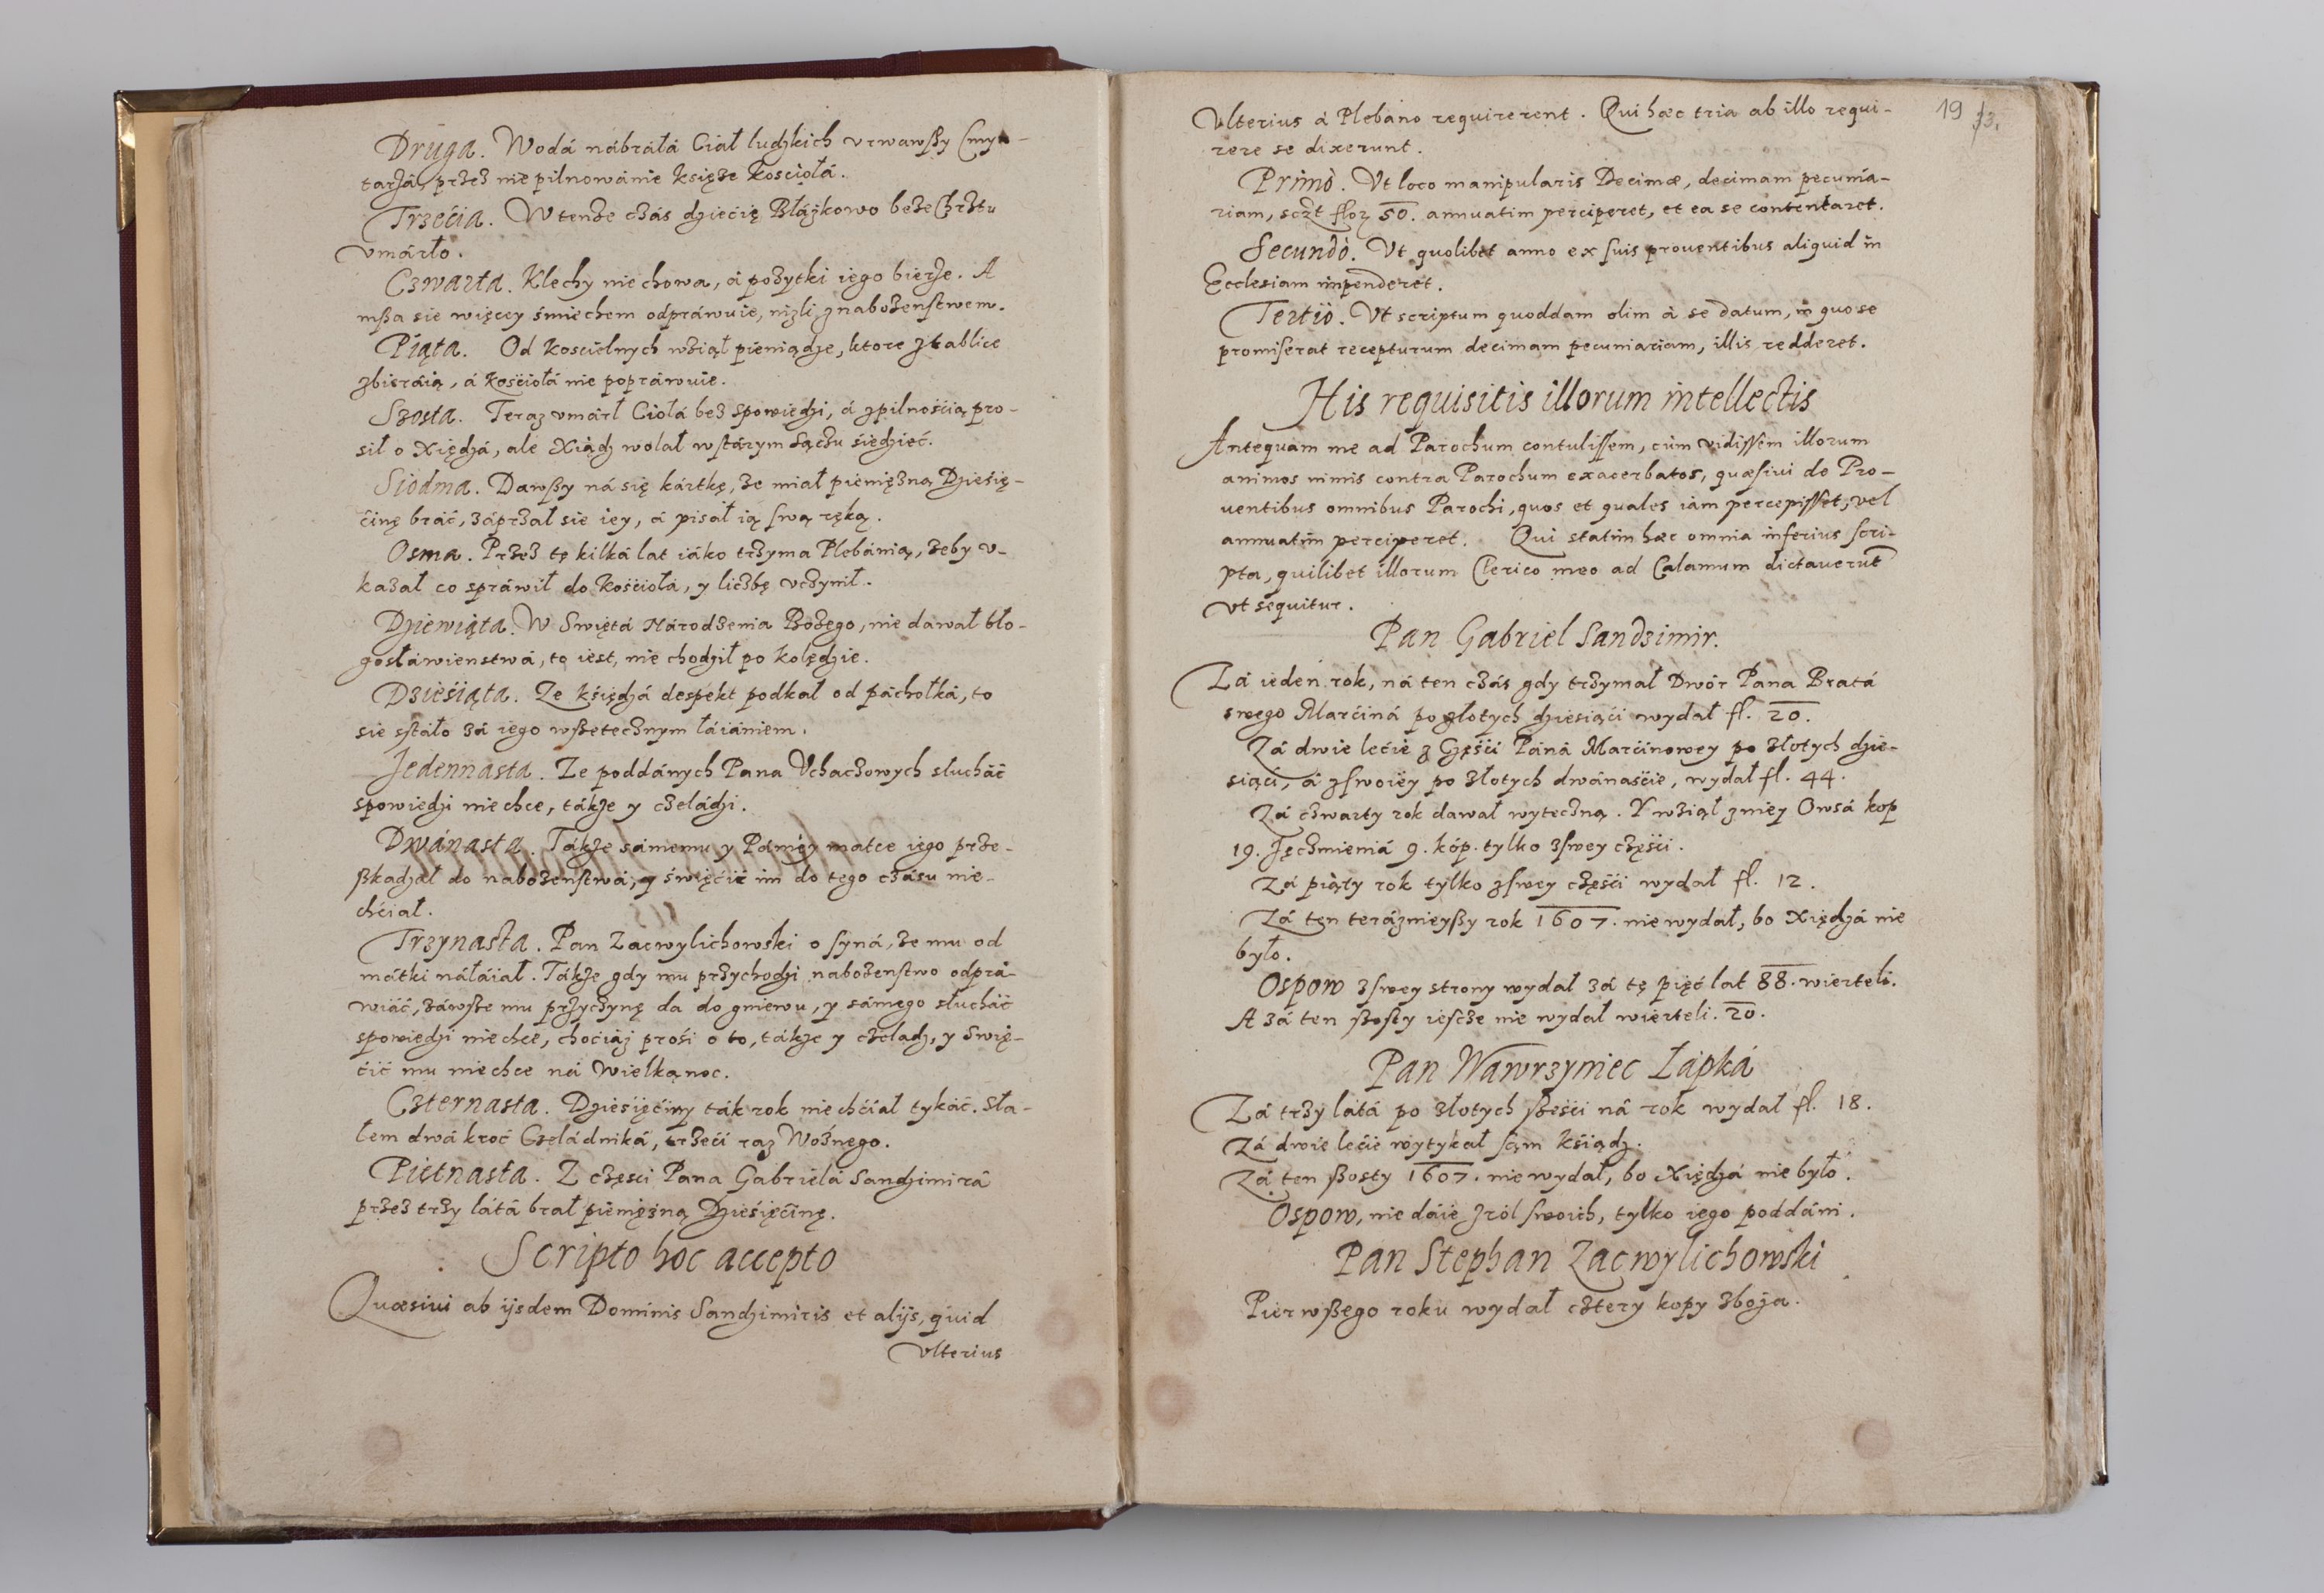 Druga. Wodá nábráłá Ciał ludzkich vrwawßy Cmyn-
tarzá, przez nie pilnowánie księże kościołá.
Trzećia. W tenże czás dziećię Błázkowo beze Chrztu
vmárło.
Czwarta. Klechy nie chowa, á pożytki iego bierze. A
mßa sie więcey śmiechem odpráwuie, nizli z nabożenstwem.
Piąta. Od kościelnych wziął pieniądze, ktore z tablice
zbieráią, á kościołá nie popráwuie.
Szosta. Teraz vmárł Ciołá bez spowiedzi, á z pilnośćią pro-
sił o Xiędzá, ale Xiądz wolał w stárym Sączu siedzieć.
Siodma. Dawßy ná się kártkę, że miał pieniężną Dzieśię-
ćinę bráć, záprzał sie iey, á pisał ią swą ręką.
Osma. Przez tę kilká lat iáko trzyma Plebánią, żeby v-
kazał co spráwił do kościołá, y liczbę vczynił.
Dziewiąta. W Swiętá Národzenia Bożego, nie dawał bło-
gosłáwienstwá, to iest, nie chodził po kolędzie.
Dzieśiąta. Ze księdzá despekt podkał od páchołká, to
sie sstáło zá iego wßetecznym łáiániem.
Jedennasta. Ze poddánych Pana Vchaczowych słucháć
spowiedzi nie chce, tákze y czeládzi.
Dwánasta. Tákze sámemu y Pániey matce iego prze-
ßkadzał do nabożenstwá, y święćić im do tego czásu nie-
chćiał.
Trzynasta. Pan Zacwylichowski o syná, że mu od
mátki náłáiał. Tákze gdy mu przychodzi nabożenstwo odprá-
wiáć, záwsze mu przyczynę da do gniewu, y sámego słucháć
spowiedzi nie chce, choćiaj prośi o to, tákze y czeladz, y Swię-
ćić mu nie chce ná Wielkąnoc.
Czternasta. Dzieśięćiny ták rok nie chćiał tykáć. Sła-
łem dwá kroć Czeládniká, trzeći raz Woźnego.
Piętnasta. Z częsci Pana Gabrielá Sandzimirá
przez trzy látá brał pieniężną Dzieśięćinę.
Scripto hoc accepto
Quæsiui ab ijsdem Dominis Sandzimiris et alijs, quid
Vlterius
19
Vlterius á Plebano requirerent. Qui hæc tria ab illo requi-
rere se dixerunt.
Primò. Vt loco manipularis Decimæ, decimam pecunia-
riam, sczt flor 50. annuatim perciperet, et ea se contentaret.
Secundò. Vt quolibet anno ex suis prouentibus aliquid in
Ecclesiam impenderet.
Tertiò. Vt scriptum quoddam olim à se datum, in quo se
promiserat recepturum decimam pecuniariam, illis redderet.
His requisitis illorum intellectis
Antequam me ad Parochum contulissem, cùm vidissem illorum
animos nimis contra Parochum exacerbatos, quæsiui de Pro-
uentibus omnibus Parochi, quos et quales iam percepisset, vel
annuatim perciperet. Qui statim hæc omnia inferius scri-
pta, quilibet illorum Clerico meo ad Calamum dictauerut
vt sequitur.
Pan Gabriel Sandzimir.
Zá ieden rok, ná ten czás gdy trzymał Dwór Pana Bratá
swego Marćiná po złotych dzieśiąći wydał fl. 20.
Zá dwie lećie z Częśći Páná Marćinowey po złotych dzie-
siąći, á z swoiey po złotych dwánaśćie, wydał fl. 44.
Zá czwarty rok dawał wyteczną. Y wziął z niey Owsá kop
19. Jęczmieniá 9. kóp. tylko z swey częśći.
Zá piąty rok tylko z swey częśći wydał fl. 12.
Zá ten teráznieyßy rok 1607. nie wydał, bo Xiędzá nie
było.
Ospow z swey strony wydał zá tę pięć lat 88. wierteli.
A zá ten ßosty iescze nie wydał wierteli. 20.
Pan Wawrzyniec Łapká
Zá trzy látá po złotych ßeśći ná rok wydał fl. 18.
Zá dwie lećie wytykał sam kśiądz.
Zá ten ßosty 1607. nie wydał, bo Xiędzá nie było.
Ospow, nie dáie z ról swoich, tylko iego poddáni.
Pan Stephan Zacwylichowski
Pierwßego roku wydał cztery kopy zboża.